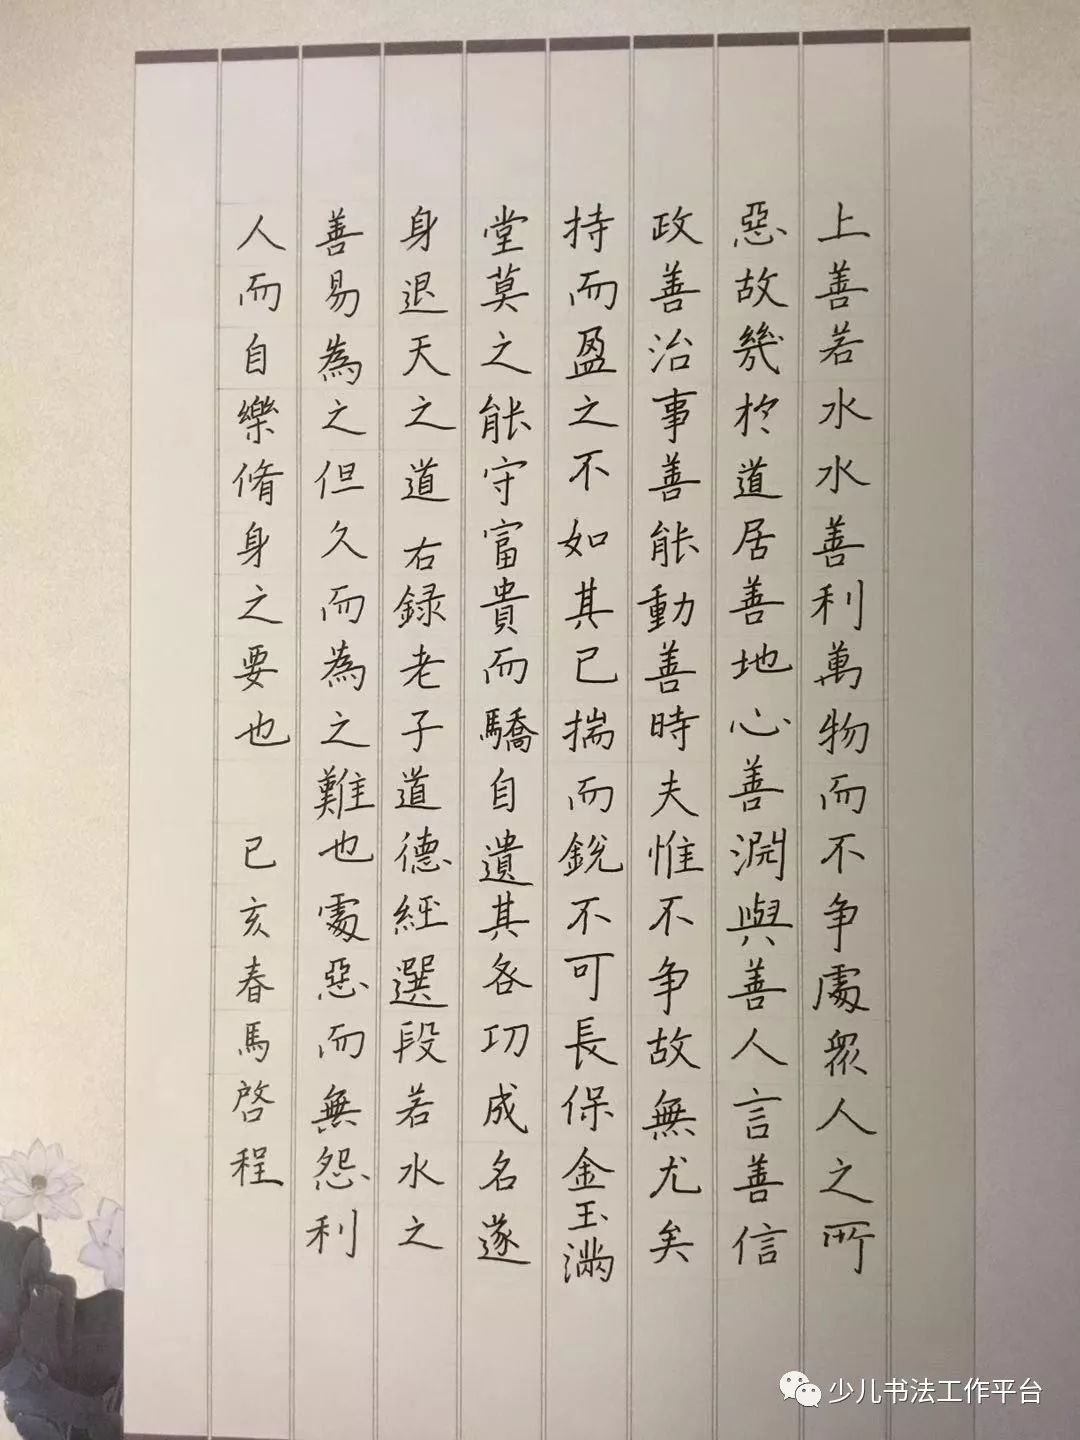 上善若水水善利萬物而不争處眾人之所
惡故幾於道居善地心善淵與善人言善信
政善治事善能動善時夫惟不争故無尤矣
持而盈之不如其已揣而銳不可長保金玉滿
堂莫之能守富貴而驕自遺其各功成名遂
身退天之道右録老子道德經選段若水之
善易為之但久而為之難也處惡而無怨利
人而自樂脩身之要也 已亥春馬啓程
少儿书法工作平台